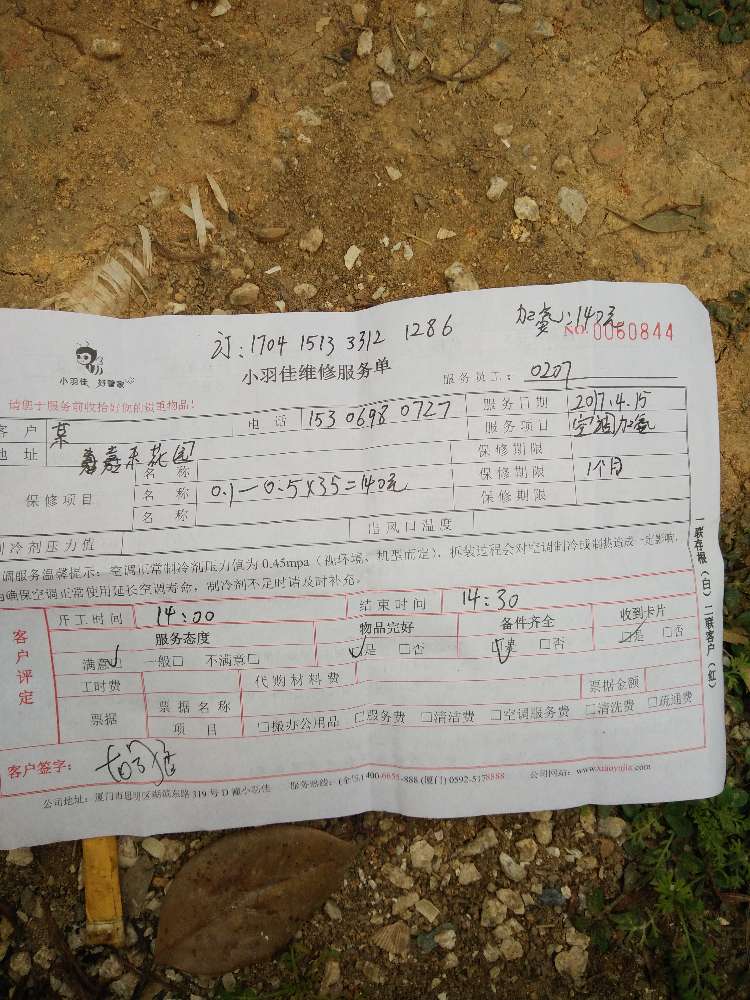 加氟:140元
订:1704 1513 3312 1286
NO.0060844
小羽佳 好管家
小羽佳维修服务单
服务员工: 0207
请您于服务前收拾好你的贵重物品!
客户 電话 153 0698 0727 服务日期 2017.4.15
地址 嘉禾花园 服务项目 空调加氟
名称 保修期限
保修项目 名称 0.1-0.5×35=140元 保修期限 1个月
名称 保修期限
制冷剂压力值 出风口温度
调服务温馨提示:空调正常制冷剂压力值为0.45mpa(视环境、机型而定)、拆装过程会对空调制冷或制热造成一定影响,
确保空调正常使用延长空调寿命,制冷剂不足时请及时补充。
客户评定
开工时间 14:00 结束时间 14:30
服务态度 物品完好 备件齐全 收到卡片
满意□ 一般□ 不满意□ □是 □否 □是 □否 □是 □否
工时费 代购材料费
票据 票据名称 票据金额
项目 □办公用品 □服务费 □清洁费 □空调服务费 □清洗费 □疏通费
客户签字:
公司地址:厦门市思明区湖滨东路319号D 小羽佳 服务热线:(全国)400-6655-888 (厦门) 0592-5178888 公司网站:www.xiaoyujia.com
一联存根(白) 二联客户(红)